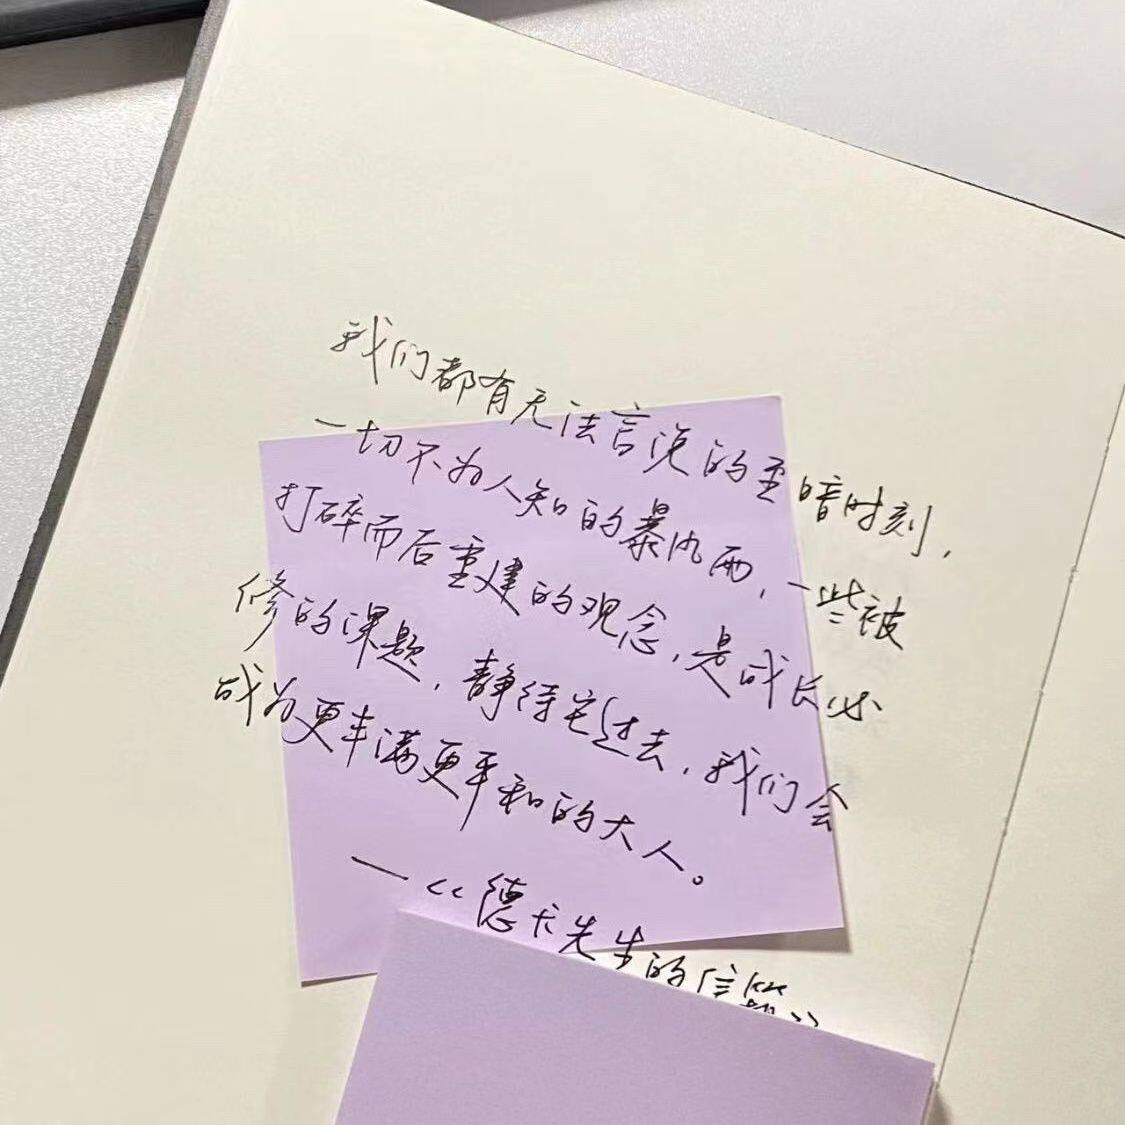 我们都有无法言说的至暗时刻,
一切不为人知的暴风雨,一些被
打碎而后重建的观念,是成长必
修的课题,静待它过去,我们会
成为更丰满更平和的大人。
—<<德卡先生的信箱>>